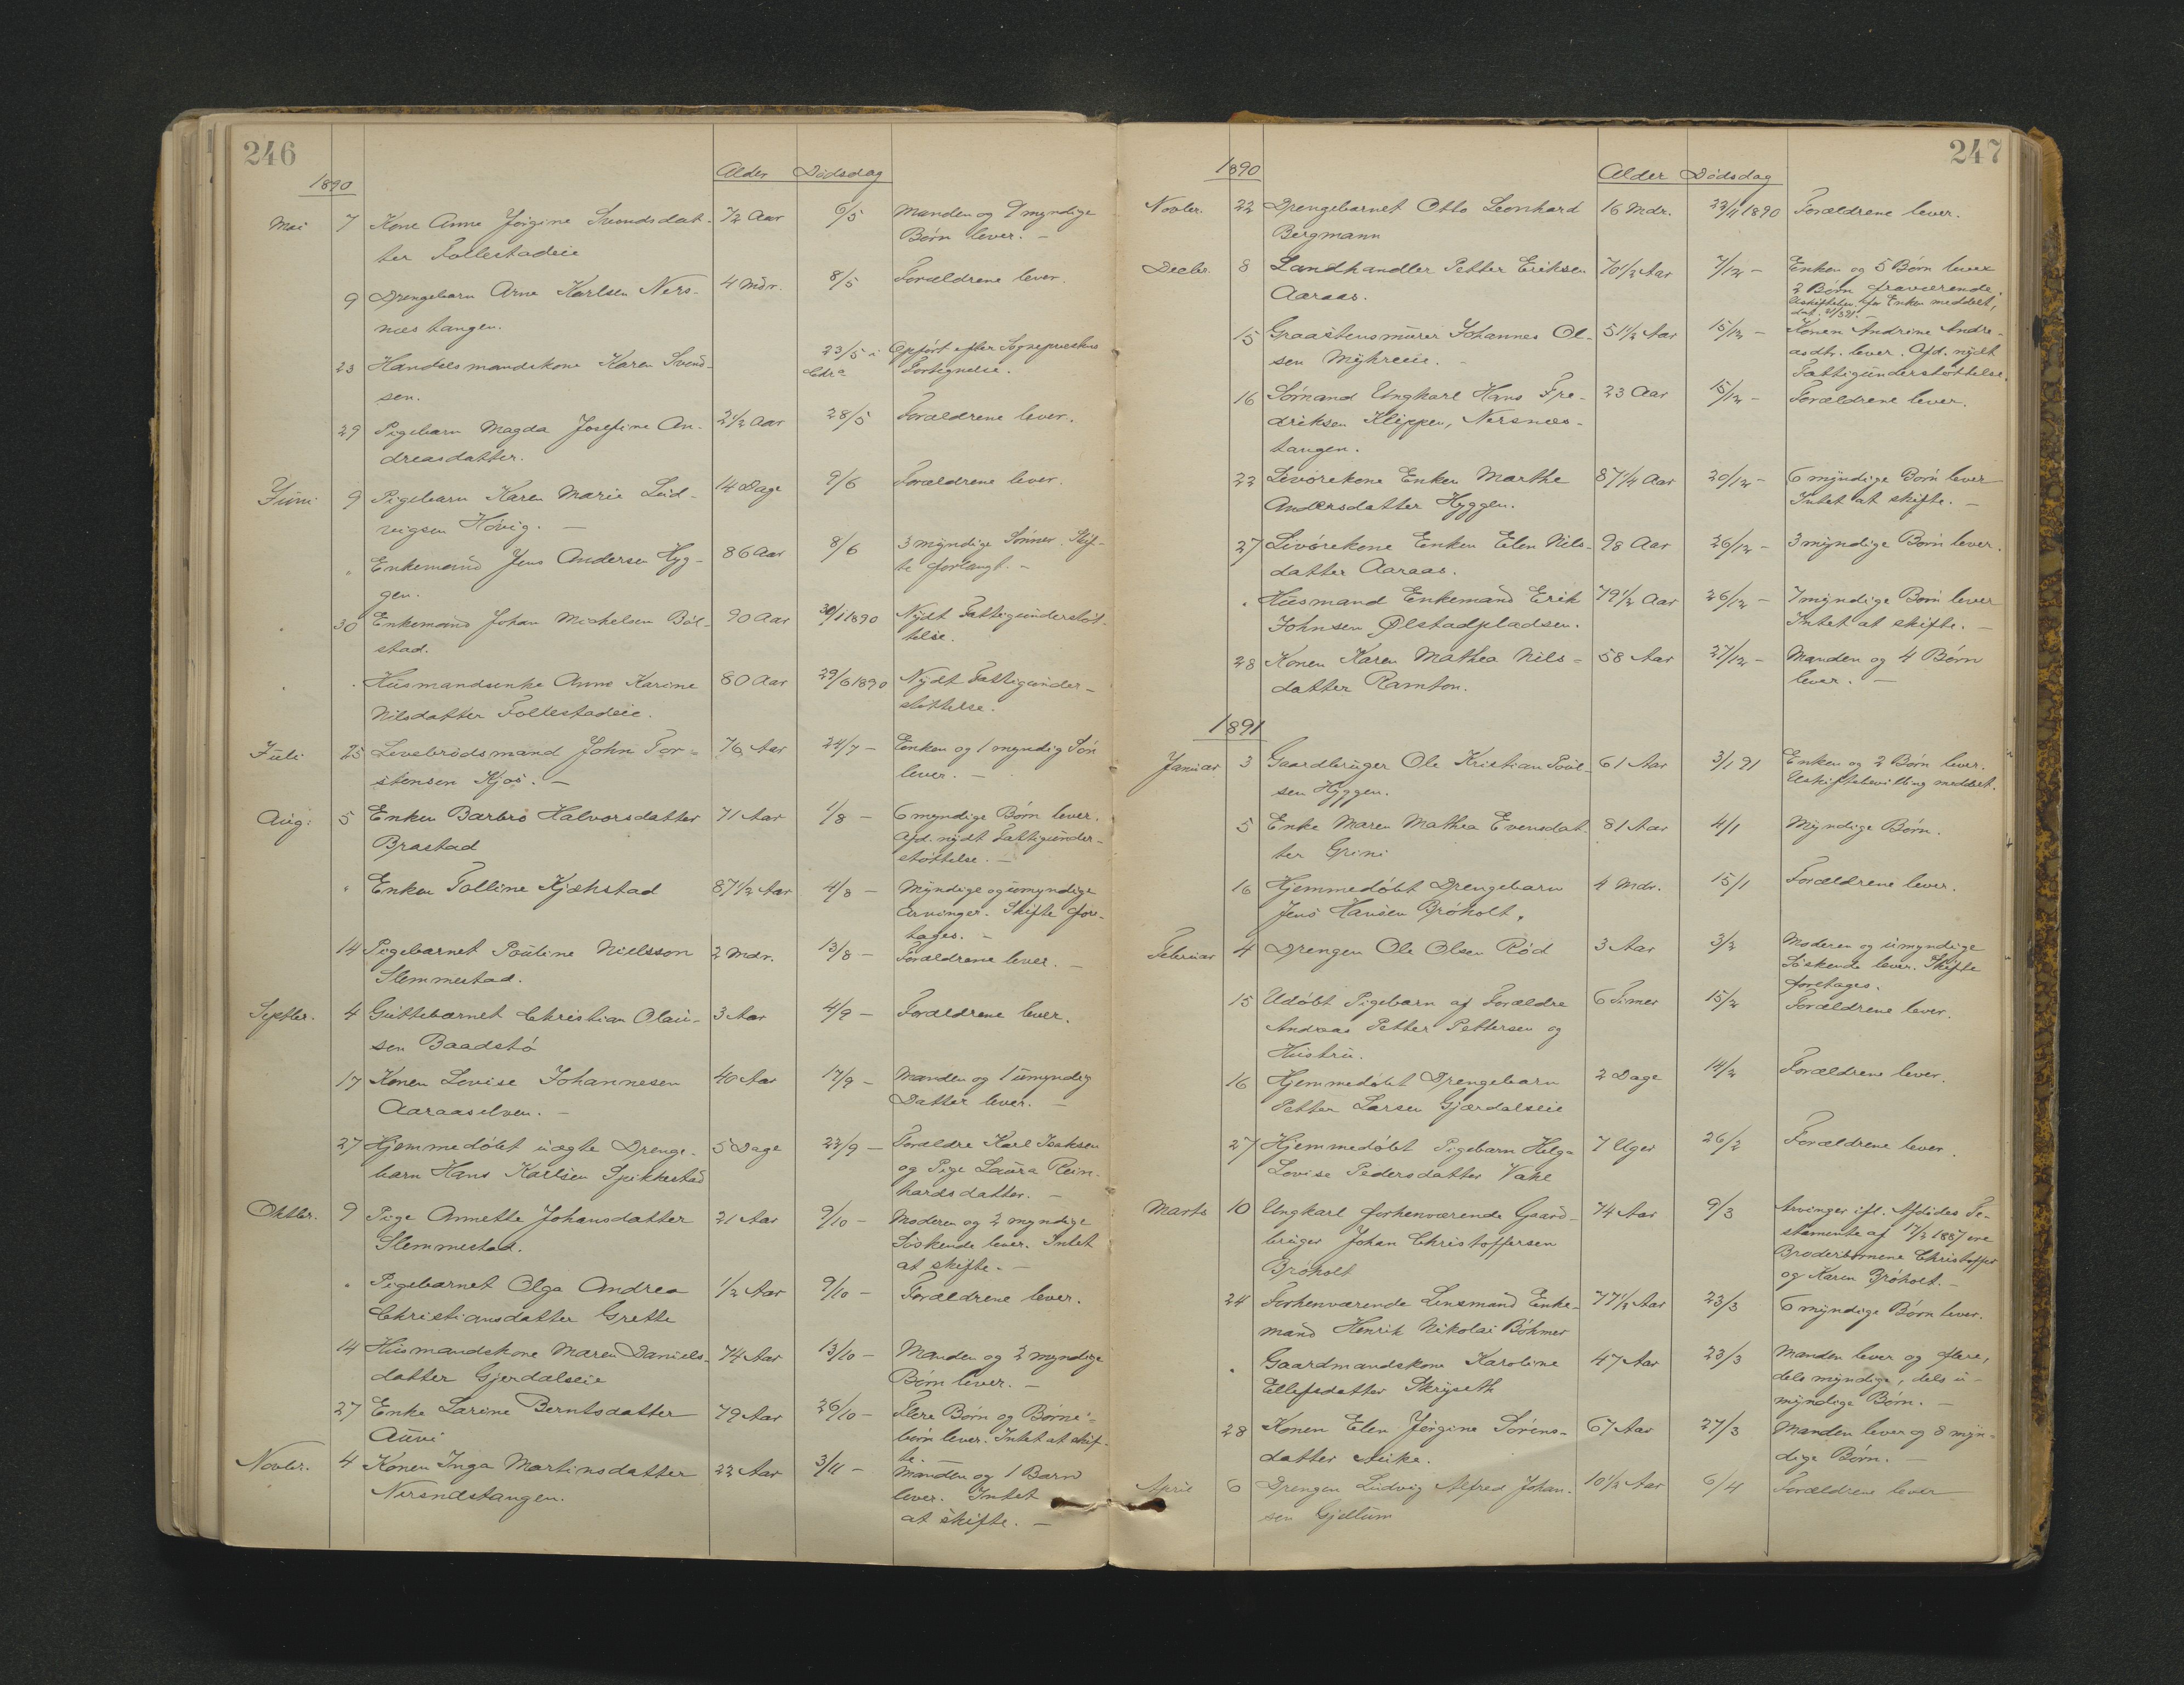 246
1890
Alder Dödsdag
Mai 7 Kone Anne Jörgine Svendsdat- 72 Aar 6/5 Manden og 9 myndige
ter Follestadeie Börn lever. –
9 Drengebarn Arne Karlsen Ners- 4 Mdr. 8/5 Forældrene lever.
nes tangen.
23 Handelsmandskone Karen Svend- 23/5 i Opfört efter Sognepræstens
sen. Chra Fortegnelse.
29 Pigebarn Magda Josefine An- 2 1/2 Aar 28/5 Forældrene lever.
dreasdatter.
Juni 9 Pigebarn Karen Marie Lud- 14 Dage 9/6 Forældrene lever.
vigsen Hövig. –
" Enkemand Jens Andersen Hyg- 86 Aar 8/6 3 myndige Sönner. Skif-
gen. te forlangt. –
" 30 Enkemand Johan Michelsen Böl- 90 Aar 1890 Nydt Fattigunderstöt-
stad. telse.
" " Husmandsenke Anne Karine 80 Aar 29/6 1890 Nydt Fattigunder-
Nilsdatter Follestadeie. støttelse.
Juli 25 Levebrödsmand John Tor- 76 Aar 24/7 – Enken og 1 myndig Sön
stensen Kjos. – lever. –
Aug: 5 Enken Barbro Halvorsdatter 71 Aar 1/8 – 6 myndige Börn lever.
Brastad Afd. nydt Fattigunder-
støttelse. –
" Enken Tolline Kjækstad 87 1/2 Aar 4/8 – Myndige og umyndige
Arvinger. Skifte fore-
tages. –
14 Pigebarnet Pauline Nielsson 2 Mdr. 13/8 – Forældrene lever. –
Slemmestad.
Septbr. 4 Guttebarnet Christian Olau- 3 Aar 4/9 – Forældrene lever.
sen Baadstö
17 Konen Levise Johannesen 40 Aar 17/9 – Manden og 1 umyndig
Aaraaselven. – Datter lever. –
27 Hjemmedöbt uægte Drenge- 5 Dage 22/9 – Forældre Karl Isaksen
barn Hans Karlsen Spikkestad og Pige Laura Rein-
hardsdatter. –
Oktbr. 9 Pige Annette Johansdatter 21 Aar 9/10 – Moderen og 2 myndige
Slemmestad. Söskende lever. Intet
at skifte. –
" Pigebarnet Olga Andrea 1/2 Aar 9/10 – Forældrene lever.
Christiansdatter Grette
14 Husmandskone Maren Daniels- 74 Aar 13/10 – Manden og 2 myndige
datter Gjerdalseie Börn lever. –
27 Enke Larine Berntsdatter 79 Aar 26/10 – Flere Börn og Börne-
Auvi börn lever. Intet at skif-
te.
Novbr. 4 Konen Inga Martinsdatter 22 Aar 3/11 – Manden og 1 Barn
Nersnestangen. lever. Intet
at skifte. –
247
1890
Alder Dödsdag
Novbr. 22 Drengebarnet Otto Leonhard 16 Mdr. 22/11 1890 Forældrene lever.
Bergmann
Decbr. 8 Landhandler Petter Eriksen 70 1/2 Aar 7/12 – Enken og 5 Börn lever
Aaraas. 2 Börn fraværende.
Uskiftebev. for Enken meddelt,
15 Graastensmurer Johannes Ol- 51 1/2 Aar 15/12 – Konen Andrine Andre-
sen Myhreeie. – asdtr. lever. Afd. nydt
Fattigunderstøttelse.
16 Sömand Ungkarl Hans Fre- 23 Aar 15/12 – Forældrene lever.
driksen Klippen, Nersnes-
tangen.
22 Livörekone Enken Marthe 87 1/4 Aar 20/12 – 6 myndige Börn lever
Andersdatter Hyggen. Intet at skifte. –
27 Livörekone Enken Elen Nils- 98 Aar 26/12 – 3 myndige Börn lever.
datter Aaraas.
" Husmand Enkemand Erik 79 1/2 Aar 26/12 – 7 myndige Börn lever
Johnsen Ølstadpladsen. Intet at skifte. –
28 Konen Karen Mathea Nils- 58 Aar 27/12 – Manden og 4 Börn
datter Ramton. lever. –
1891
Januar 3 Gaardbruger Ole Kristian Poul- 61 Aar 3/1 91 Enken og 2 Börn lever.
sen Hyggen. Uskiftebevilling meddelt.
5 Enke Maren Mathea Evensdat- 81 Aar 4/1 Myndige Börn.
ter Grini
16 Hjemmedöbt Drengebarn 4 Mdr. 15/1 Forældrene lever.
Jens Hansen Bröholt.
Februar 4 Drengen Ole Olsen Röd 3 Aar 3/2 Moderen og umyndige
Söskende lever. Skifte
foretages.
15 Udöbt Pigebarn af Forældre 6 Timer 15/2 Forældrene lever.
Andreas Petter Pettersen og
Hustru.
16 Hjemmedöbt Drengebarn 2 Dage 14/2 Forældrene lever.
Petter Larsen Gjerdalseie
27 Hjemmedöbt Pigebarn Helga 7 Uger 26/2 Forældrene lever.
Lovise Pedersdatter Vake
Marts 10 Ungkarl forhenværende Gaard- 74 Aar 9/3 Arvinger ifl. Afdödes Te-
bruger Johan Christoffersen stamente af 17/2 1887 ere
Bröholt Broderbörnene Christoffer
og Karen Bröholt. –
24 Forhenværende Lensmand Enke- 77 1/2 Aar 23/3 6 myndige Börn lever.
mand Henrik Nikolai Böhmer
" Gaardmandskone Karoline 47 Aar 23/3 Manden lever og flere,
Ellefsdatter Skryseth dels myndige, dels u-
myndige Börn. –
28 Konen Elen Jörgine Sörens- 67 Aar 27/3 Manden lever og 8 myn-
datter Auke. dige Börn. –
April 6 Drengen Ludvig Alfred Johan- 10 1/2 Aar 6/4 Forældrene lever
sen Gjellum